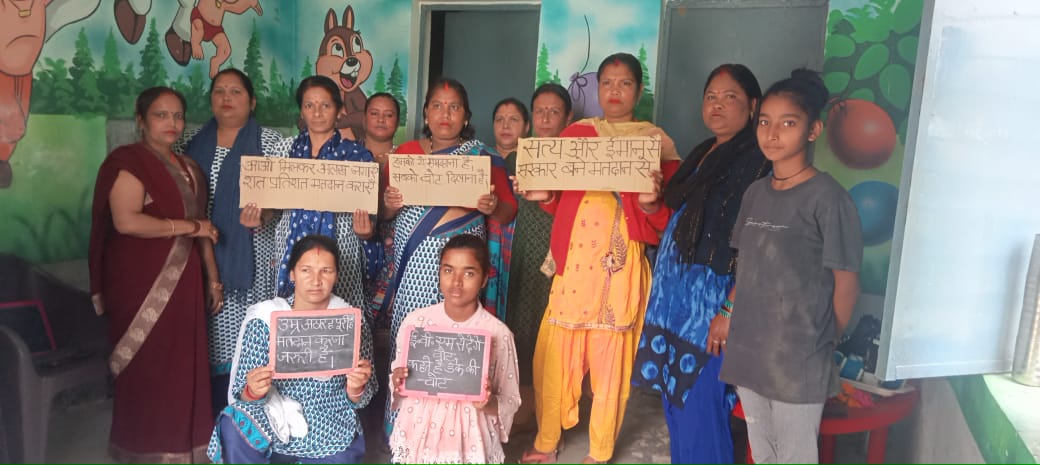 आओ मिलकर अलख जगाए
शत प्रतिशत मतदान कराएं
सबको ये समझाना है,
सबको वोट दिलाना है।
सत्य और ईमान से
सरकार बने मतदान से
उम्र अठारह पूरी है
मतदान करना
जरूरी है।
ई.वी.एम से देंगे
वोट,
कहते है डंके की
चोट